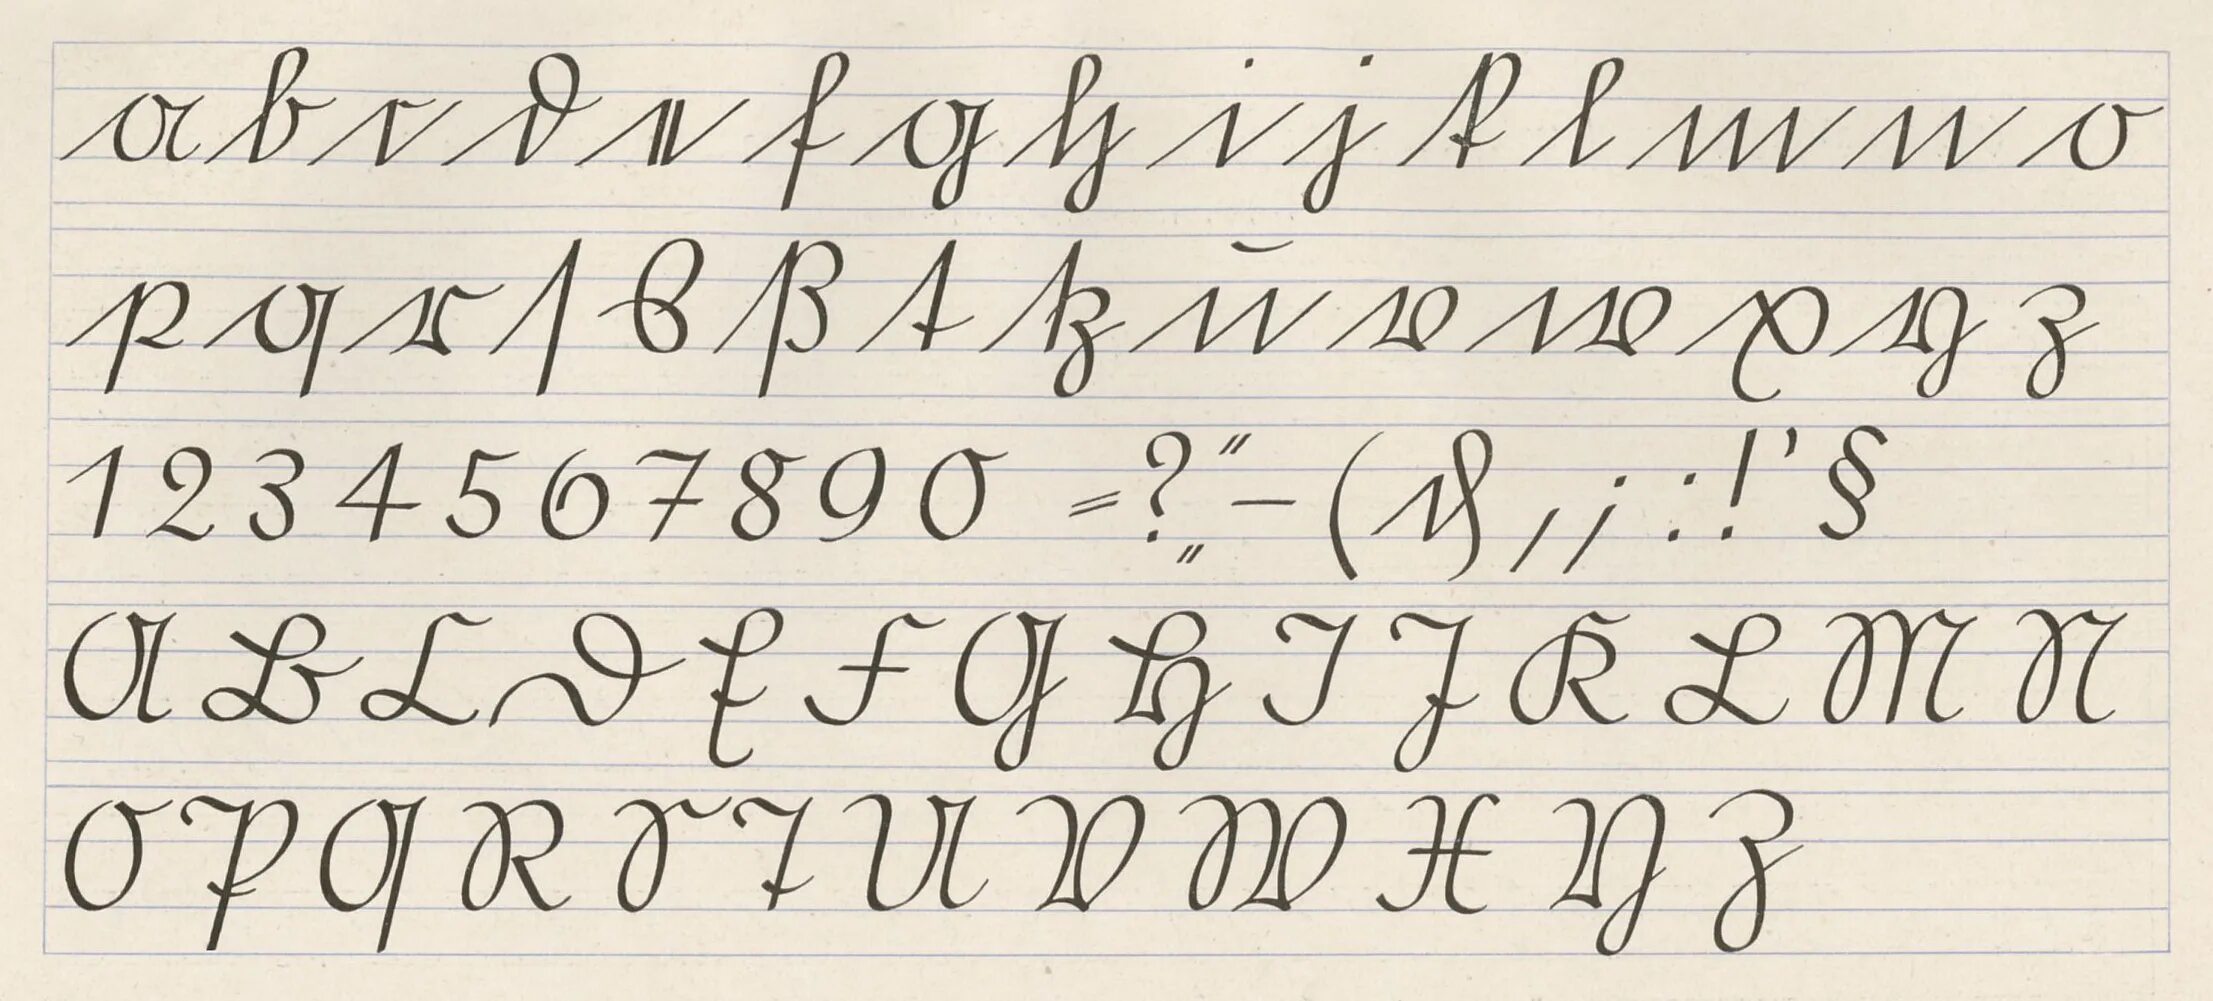 a b c d e f g h i j k l m n o
p q r ſ s ß t tz ŭ v w x y z
1 2 3 4 5 6 7 8 9 0 = ? „ “ – ( & , ; : ! ’ §
A B C D E F G H I J K L M N
O P Q R S T U V W X Y Z